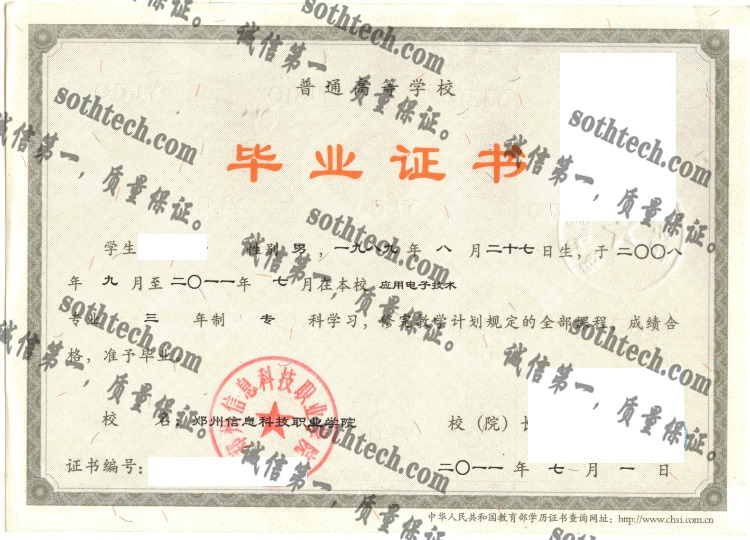 普通高等学校
毕业证书
学生 性别 男 ，一九八九 年 八 月 二十七 日生，于 二〇〇八
年 九 月至 二〇一一 年 七 月在本校 应用电子技术
专业 三 年制 专 科学习，修完教学计划规定的全部课程，成绩合
格，准予毕业。
校 名：郑州信息科技职业学院 校（院）长
证书编号： 二〇一一 年 七 月 一 日
中华人民共和国教育部学历证书查询网址：http://www.chsi.com.cn
郑州信息科技职业学院
sothtech.com
诚信第一，质量保证。
sothtech.com
诚信第一，质量保证。
sothtech.com
诚信第一，质量保证。
sothtech.com
诚信第一，质量保证。
sothtech.com
诚信第一，质量保证。
sothtech.com
诚信第一，质量保证。
sothtech.com
诚信第一，质量保证。